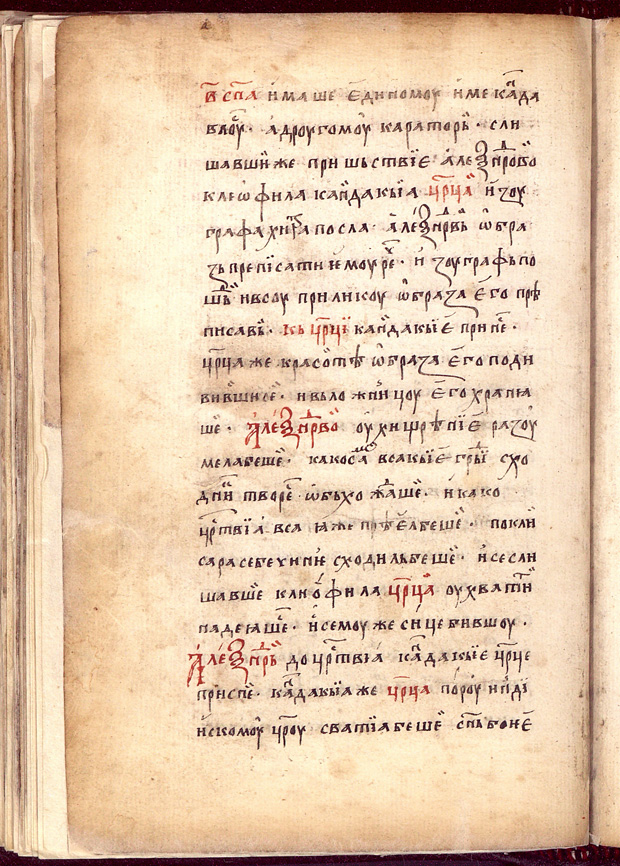 в҃ сн҃а имаше єдиномоу име канда
влоу҆ · а дроугомоу҆ караторь · сли
шавши же пришьствїе але҆ѯан҆дрово
клеѡфила кандакыа цр҃ца и҆ зоу
графа хитра посла · а҆леѯан҆дровь ѡ҆бра
зь преписати и҆ емоу рече · и҆ зоуграфь по
шьⷣ и҆ всоу приликоу ѡ҆браза є҆го прѣ
писавь · кь цр҃ци кандакыє҆ принесе ·
цр҃ца же красотѣ ѡ҆браза є҆го подн
вившисе · и вь ложницоу є҆го храниа
ше · а҆леѯан҆дрово оухищренїе разоу
мела беше · како са всакыє грⷣаⷣи схо
днⷩи творе ѡ҆бьхождаше · и како
црⷭ҇твїа вса яже прѣ беше · покли
сара себе чине сходиль беше · и҆ се сли
шавше клиѡфила цр҃ца оухватити
надеꙗше · и҆ семоу же сице бившоу ·
Але҆ѯан҆дрь до црⷭ҇твїа кандакыє цр҃це
приспе · кандакыа же цр҃ца пороу и҆ нди
и҆скомоу҆ цр҃оу сватїа беше сн҃ь бо не